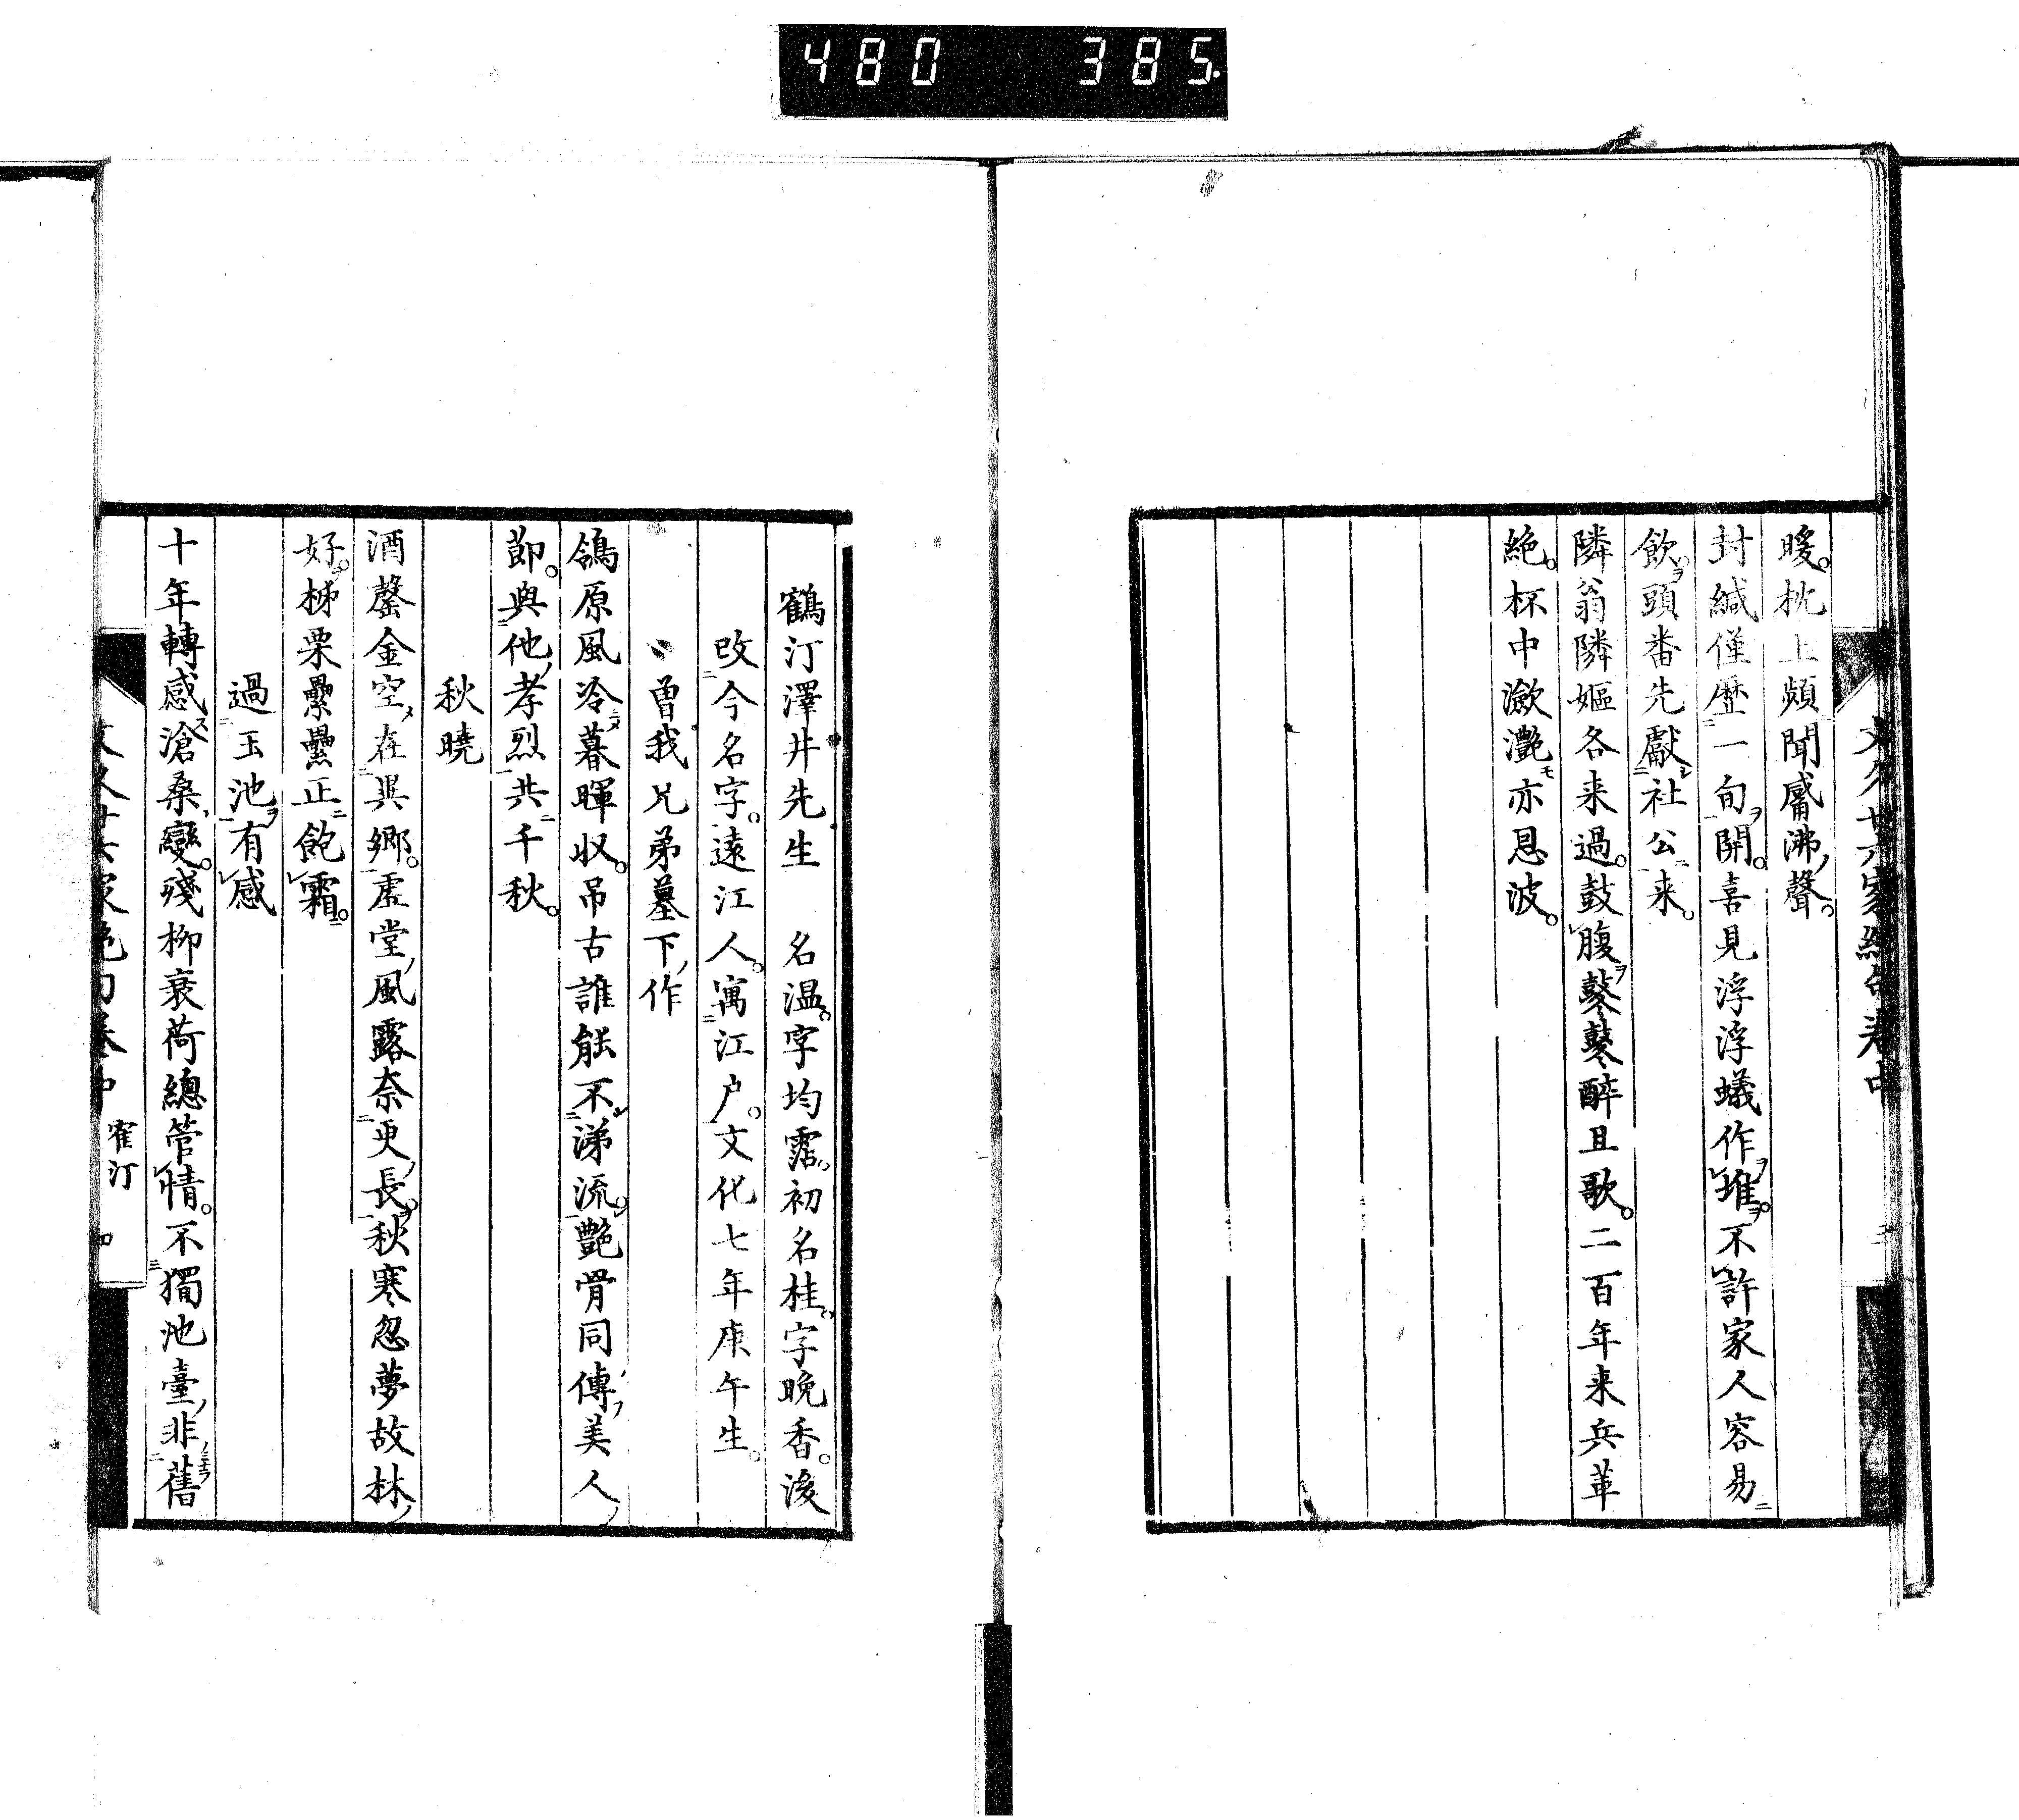 480 385
文久廿六家絶句卷中
暖。枕上頻聞觱沸ノ聲。
封緘僅歴一旬ヲ開。喜見浮浮蟻作堆ヲ。不許家人容易
飲ヲ。頭番先獻シ社公来。
隣翁隣嫗各来過。鼓腹ヲ鼕鼕醉且歌。二百年来兵革
絶。杯中瀲灔モ亦恩波。
鶴汀澤井先生 名温。字均霑。初名桂。字晩香。後
改今名字。遠江人。寓江户。文化七年庚午生。
曽我兄弟墓下ノ作
鴒原風冷暮暉収。吊古誰能不涕流。艶骨同傳フ美人ノ
節。與他ノ孝烈共千秋。
秋曉
酒罄金空メ在異鄉。虚堂ノ風露奈更ノ長。秋寒忽夢故林ノ
好。柹栗纍纍正飽霜。
過玉池ヲ有感
十年轉感ス滄桑ノ變。殘柳衰荷總管情。不獨池臺ノ非舊
文久廿六家絶句卷中 寉汀